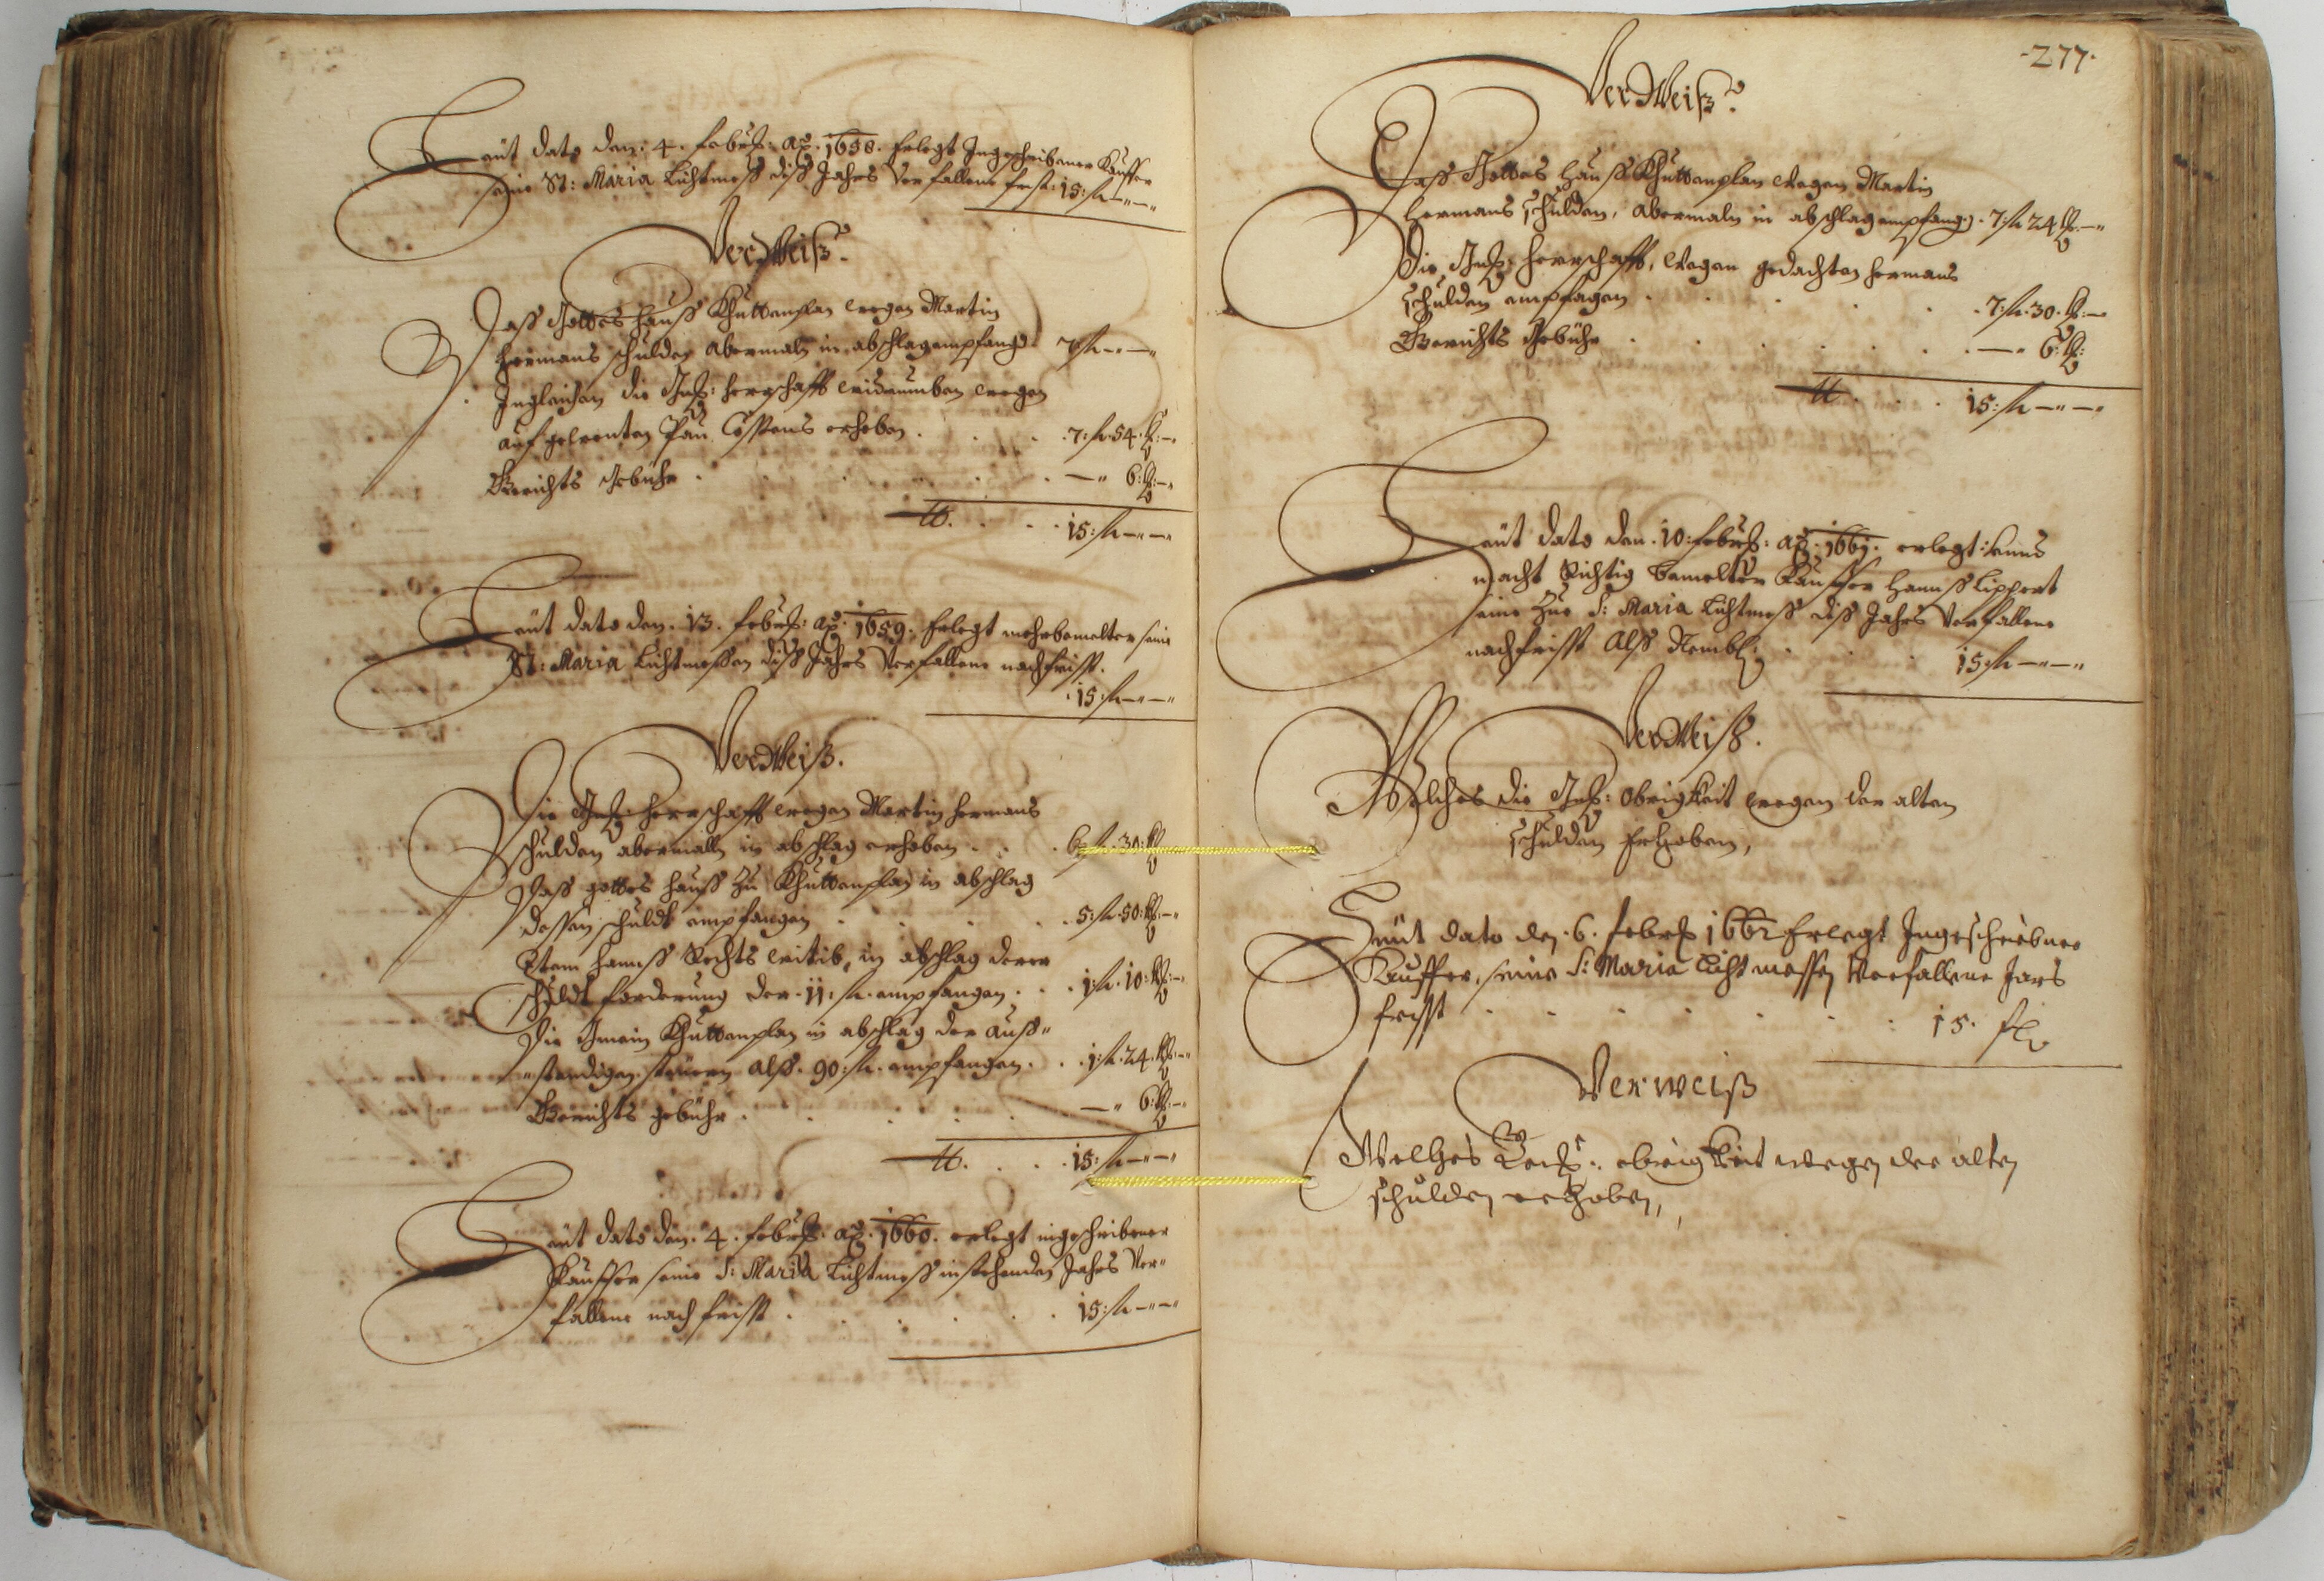 Heüt dato den. 4. febr: aõ. 1658. Erlegt Ingeschribener Kauffer
seine St: Maria Liechtmeß diß Jahrs Verfallene frist. 15: fl — " — "
VerWeiß.
Daß Gottes Hauß Khuttenplan wegen Martin
Hermans schulden abermaln in abschlag empfangen 7 fl — " — "
Ingleichen die Gnd: Herrschafft widerumben wegen
auf geleenten Pau Costens erhoben . . . 7: fl. 54. kr: — "
Gerichts Gebühr . . . — " 6: kr: — "
15: fl — " — "
Heüt dato den. 13. febr: aõ. 1659. Erlegt mehrbemelter seine
St: Maria Liechtmessen diß Jahrs Verfallene nachfrist.
15: fl — " — "
VerWeiß.
Die Gnd: Herrschafft wegen Martin Hermans
schulden abermalln in abschlag erhoben . . . 6: fl. 30: kr
Daß gottes Hauß zu Khuttenplan in abschlag
dessen schuldt empfangen . . . 5: fl. 50: kr: — "
Item Hannß Wittib, in abschlag derer
schuldt forderung der. 11: fl. empfangen . . 1: fl. 10: kr: — "
Die Gmein Khuttenplan in abschlag der auß"
"stendigen steüern alß. 90: fl. empfangen . . 1: fl. 24. kr: — "
Gerichts gebühr . . . — " 6: kr: — "
15: fl — " — "
Heüt dato den. 4. febr: aõ. 1660. erlegt ingeschribener
Kauffer seine S: Maria Liechtmeß instehenden Jahrs Ver"
fallene nach frist . . . 15: fl — " — "
-277-
VerWeiß.
Daß Gottes Hauß Khuttenplan wegen Martin
Hermans schulden, abermaln in abschlag empfang: . 7: fl 24 kr. — "
Die Gnd: Herrschafft, wegen gedachten Hermans
schulden empfagen . . . 7: fl. 30. kr: — "
Gerichts Gebühr . . . — " 6: kr:
15: fl — " — "
Heüt dato den. 10: febr: aõ. 1661. erlegt
macht Richtig bemelter Kauffer Hannß Lippert
seine zue S: Maria Liechtmeß diß Jahrs Verfallene
nachfrist Alß Nembl: . . . 15: fl — " — "
VerWeiß.
Welches die Gnd: Obrigkeit wegen der alten
schulden Erhoben,
Heüt dato den. 6. febr 1662 Erlegt Ingeschribner
Kauffer, seine S: Maria Liecht messen Verfallene Jars
frist . . . 15. fl
Verweiß
Welches obrigkeit wegen der alten
schulden erhoben,,